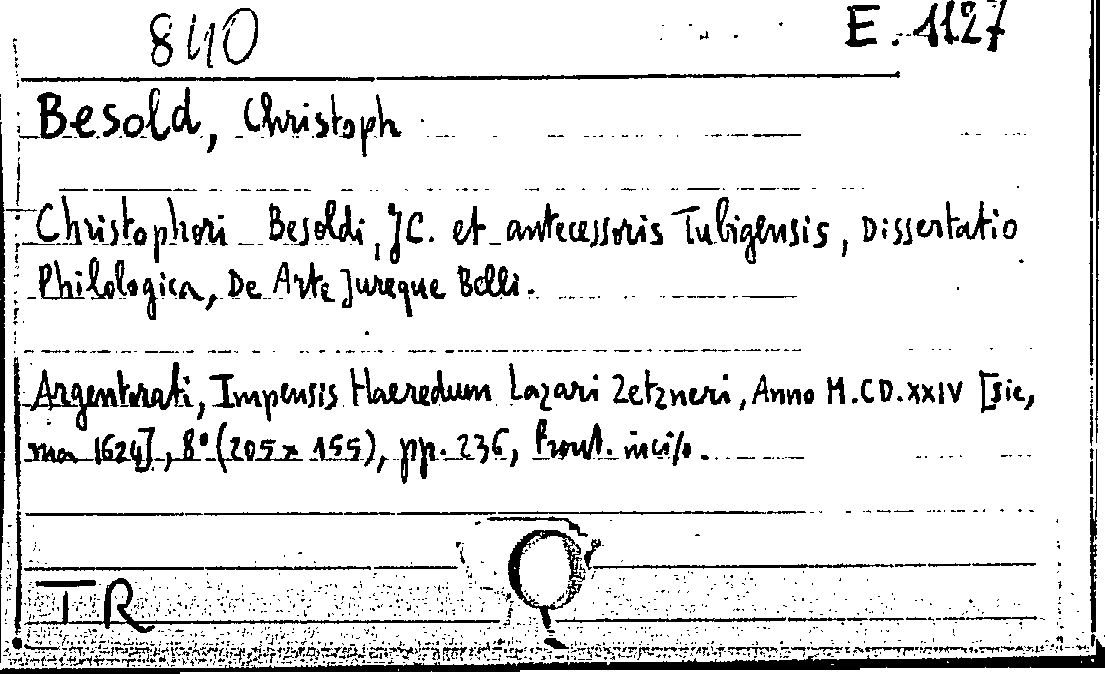 840 E. 1127
Besold, Christoph
Christophori Besoldi, JC. et antecessoris Tubigensis, Dissertatio
Philologica, De Arte Jureque Belli.
Argentorati, Impensis Haeredum Lazari Zetzneri, Anno M.CD.XXIV [sic,
ma 1624], 8° (205 x 155), pp. 236, Front. inciso.
TR